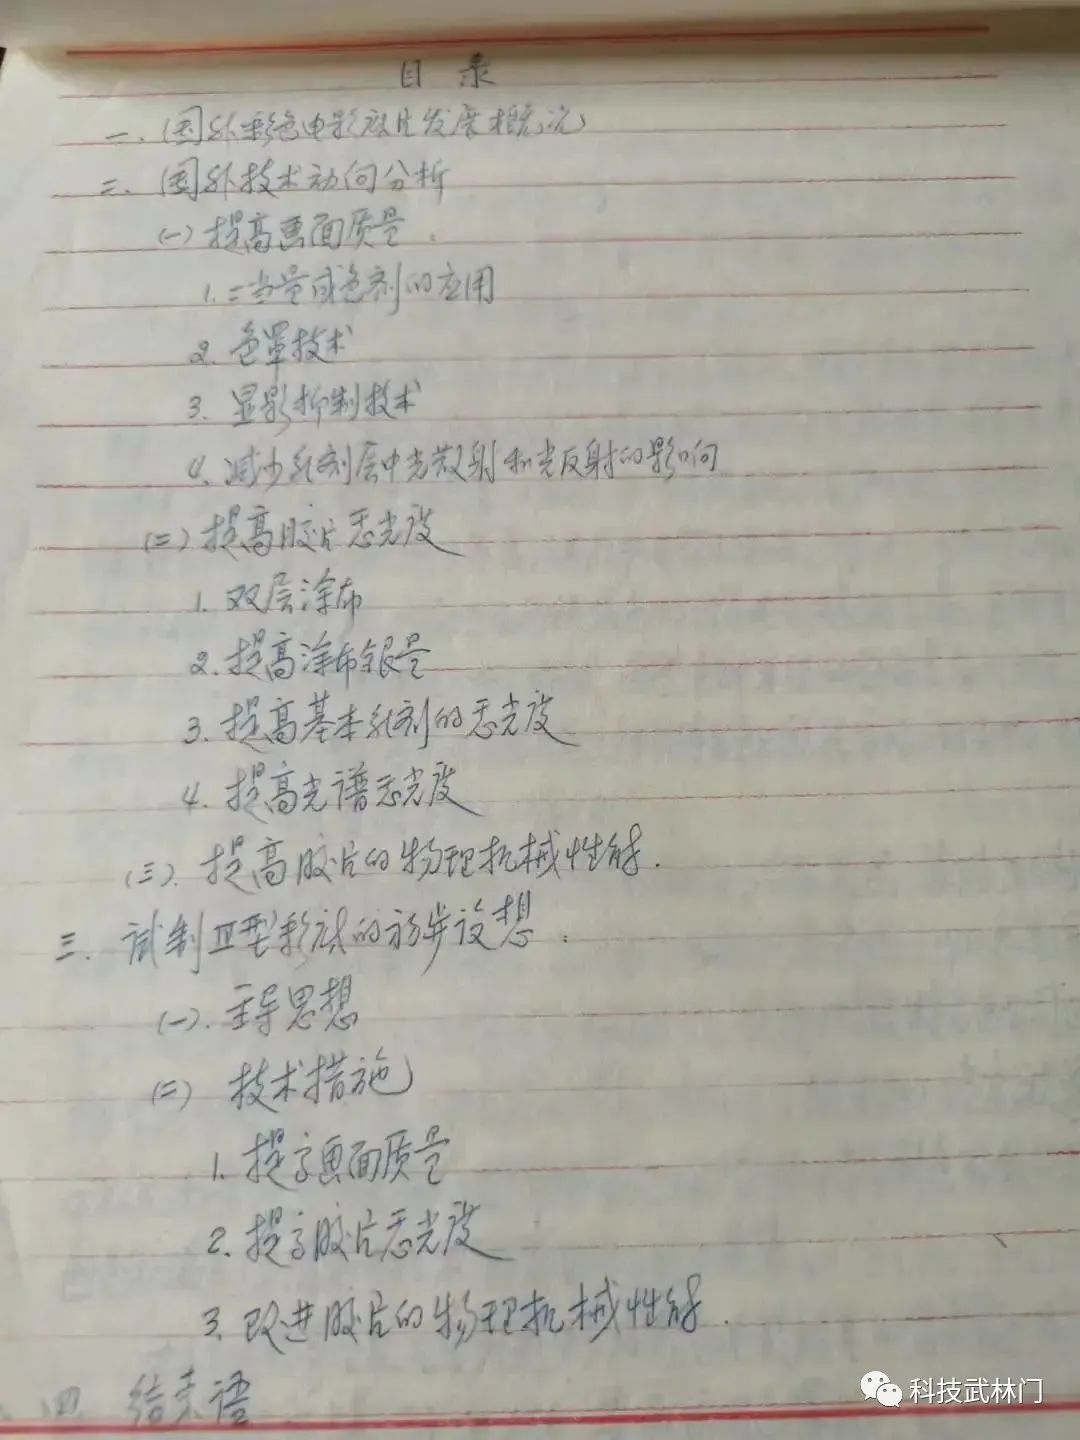 目录
一.国外彩色电影底片发展概况
二.国外技术动向分析
(一)提高画面质量.
1.二当量成色剂的应用
2.色罩技术
3.显影抑制技术
4.减少乳剂层中光散射和光反射的影响
(二)提高胶片感光度
1.双层涂布
2.提高涂布银量
3.提高基本乳剂的感光度
4.提高光谱感光度
(三).提高胶片的物理机械性能.
三.试制Ⅲ型彩底的初步设想:
(一).主导思想
(二)技术措施
1.提高画面质量
2.提高胶片感光度
3.改进胶片的物理机械性能.
四 结束语
科技武林门